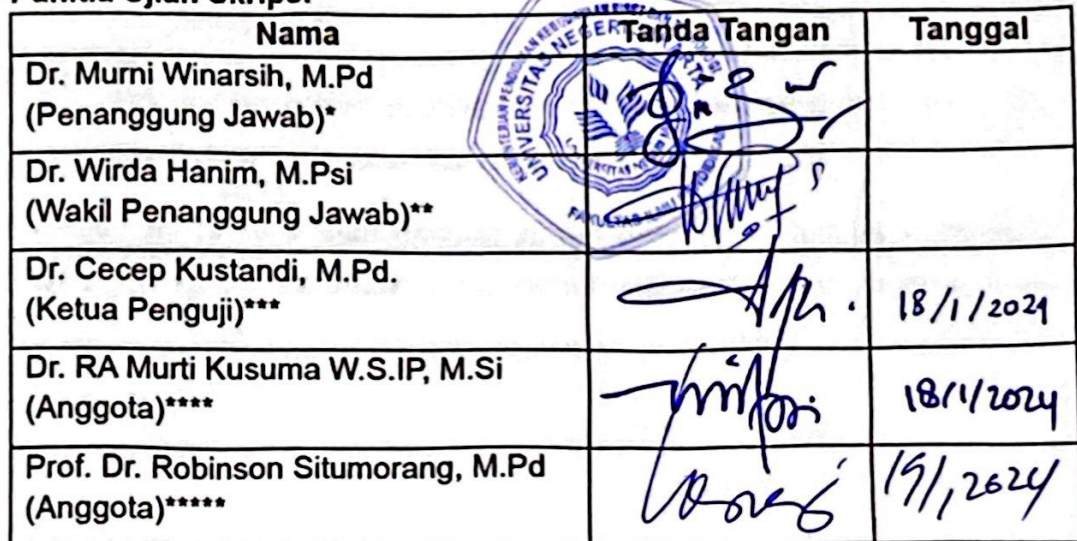 Panitia Ujian Skripsi
Nama Tanda Tangan Tanggal
Dr. Murni Winarsih, M.Pd
(Penanggung Jawab)*
Dr. Wirda Hanim, M.Psi
(Wakil Penanggung Jawab)**
Dr. Cecep Kustandi, M.Pd.
(Ketua Penguji)***
18/1/2024
Dr. RA Murti Kusuma W.S.IP, M.Si
(Anggota)****
18/1/2024
Prof. Dr. Robinson Situmorang, M.Pd
(Anggota)*****
UNIVERSITAS NEGERI JAKARTA